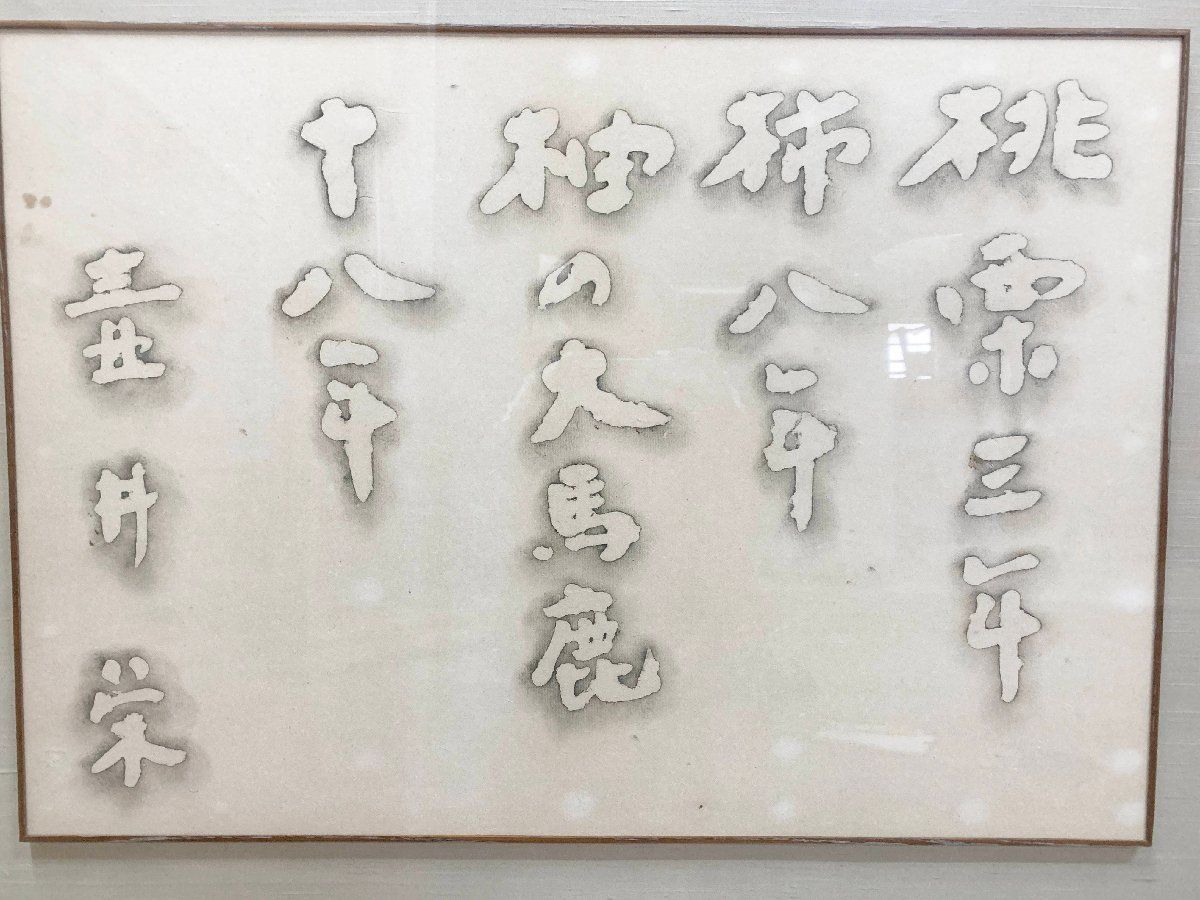 桃栗三年
柿八年
柚の大馬鹿
十八年
壷井栄